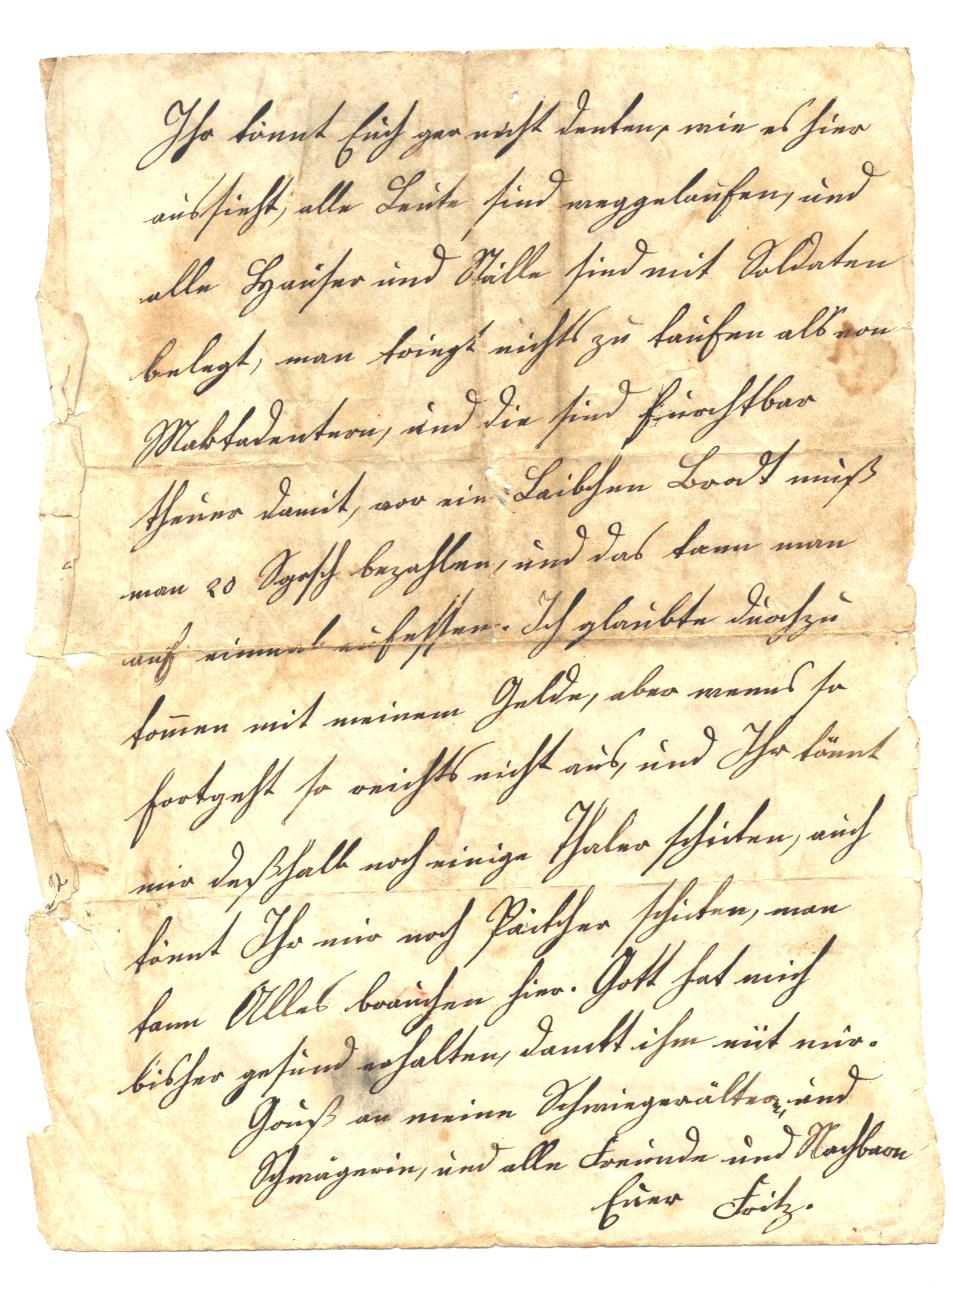 Ihr könnt Euch gar nicht denken, wie es hier
aussieht, alle Leute sind weggelaufen, und
alle Häuser und Ställe sind mit Soldaten
belegt, man kriegt nichts zu kaufen als von
Maktadentern, und die sind furchtbar
theuer damit, vor ein Laibchen Brodt muß
man 20 Sgrsch bezahlen, und das kann man
auf einmal aufessen. Ich glaubte durchzu
kom̄en mit meinem Gelde, aber wenns so
fortgeht so reichts nicht aus, und Ihr könnt
mir deßhalb noch einige Thaler schicken, auch
könnt Ihr mir noch Päckcher schicken, man
kann Alles brauchen hier. Gott hat mich
bisher gesund erhalten, dankt ihm mit mir.
Gruß an meine Schwiegerälter, und
Schwägerin, und alle Freunde und Nachbarn
Euer Fritz.